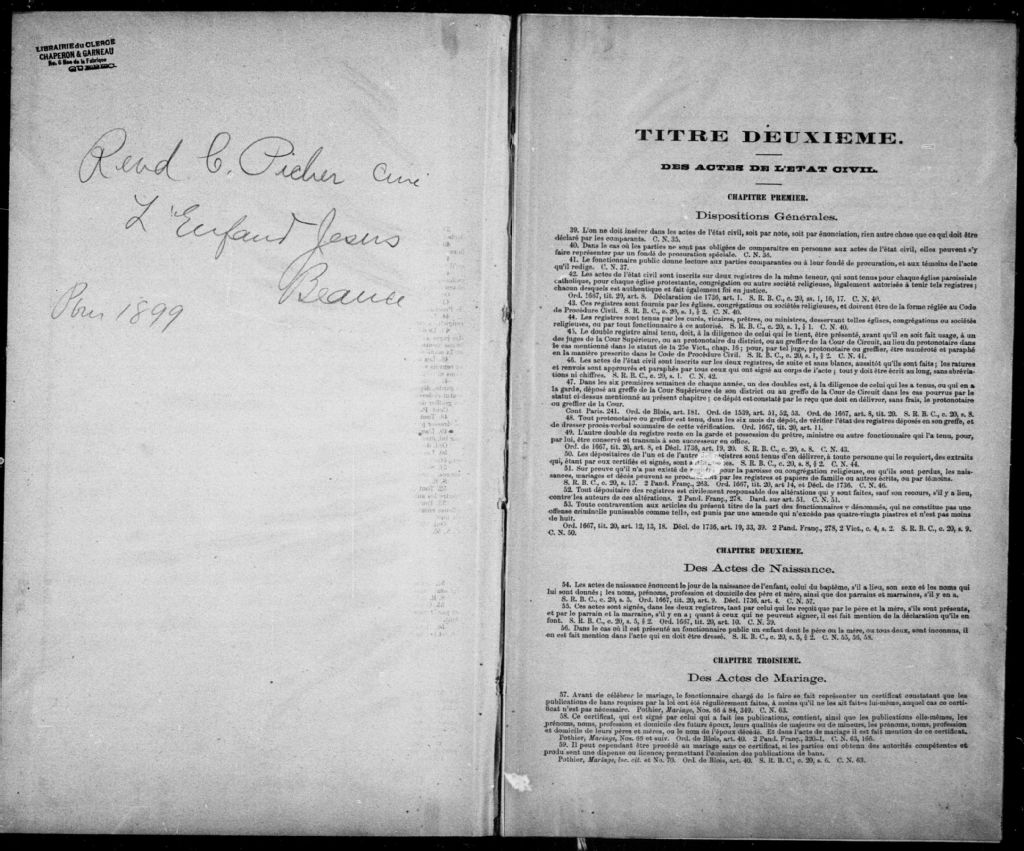 LIBRAIRIE du CLERGE
CHAPERON & GARNEAU
No. 6 Rue de la Fabrique
QUEBEC.
Revd C. Picher curé
L'Enfand Jesus
Beauce
Pour 1899
TITRE DEUXIEME.
DES ACTES DE L'ETAT CIVIL.
CHAPITRE PREMIER.
Dispositions Générales.
39. L'on ne doit insérer dans les actes de l'état civil, soit par note, soit par énonciation, rien autre chose que ce qui doit être
déclaré par les comparants. C. N. 35.
40. Dans le cas où les parties ne sont pas obligées de comparaitre en personne aux actes de l'état civil, elles peuvent s'y
faire représenter par un fondé de procuration spéciale. C. N. 36.
41. Le fonctionnaire public donne lecture aux parties comparantes ou à leur fondé de procuration, et aux témoins de l'acte
qu'il redige. C. N. 37.
42. Les actes de l'état civil sont inscrits sur deux registres de la même teneur, qui sont tenus pour chaque église paroissiale
catholique, pour chaque église protestante, congrégation ou autre société religieuse, légalement autorisés à tenir tels registres;
chacun desquels est authentique et fait également foi en justice.
Ord. 1667, tit. 20, art. 8. Déclaration de 1736, art. 1. S. R. B. C., c. 20, ss. 1, 16, 17. C. N. 40.
43. Ces registres sont fournis par les églises, congrégations ou sociétés religieuses, et doivent être de la forme réglée au Code
de Procédure Civil. S. R. B. C., c. 20, s. 1, § 2. C. N. 40.
44. Les registres sont tenus par les curés, vicaires, prêtres, ou ministres, desservant telles églises, congrégations ou sociétés
religieuses, ou par tout fonctionnaire à ce autorisé. S. R. B. C., c. 20, s. 1, § 1. C. N. 40.
45. Le double registre ainsi tenu, doit, à la diligence de celui qui le tient, être présenté, avant qu'il en soit fait usage, à un
des juges de la Cour Supérieure, ou au protonotaire du district, ou au greffier de la Cour de Circuit, au lieu du protonotaire dans
le cas mentionné dans le statut de la 25e Vict., chap. 16; pour, par tel juge, protonotaire ou greffier, être numéroté et paraphé
en la manière prescrite dans le Code de Procédure Civil. S. R. B. C., c. 20, s. 1, § 2. C. N. 41.
46. Les actes de l'état civil sont inscrits sur les deux registres, de suite et sans blancs, aussitôt qu'ils sont faits; les ratures
et renvois sont approuvés et paraphés par tous ceux qui ont signé au corps de l'acte; tout y doit être écrit au long, sans abrévia-
tions ni chiffres. S. R. B. C., c. 20, s. 1. C. N. 42.
47. Dans les six premières semaines de chaque année, un des doubles est, à la diligence de celui qui les a tenus, ou qui en a
la garde, déposé au greffe de la Cour Supérieure de son district ou au greffe de la Cour de Circuit dans les cas pourvus par le
statut ci-dessus mentionné au présent chapitre; ce dépôt est constaté par le reçu que doit en délivrer, sans frais, le protonotaire
ou greffier de la Cour.
Cout Paris. 241. Ord. de Blois, art. 181. Ord. de 1539, art. 51, 52, 53. Ord. de 1667, art. 8, tit. 20. S. R. B. C., c. 20, s. 8.
48. Tout protonotaire ou greffier est tenu, dans les six mois du dépôt, de vérifier l'état des registres déposés en son greffe, et
de dresser procès-verbal sommaire de cette vérification. Ord. 1667, tit. 20, art. 11.
49. L'autre double du registre reste en la garde et possession du prêtre, ministre ou autre fonctionnaire qui l'a tenu, pour,
par lui, être conservé et transmis à son successeur en office.
Ord. de 1667, tit. 20, art. 8, et Décl. 1736, art. 19, 20. S. R. B. C., c. 20, s. 8. C. N. 43.
50. Les dépositaires de l'un et de l'autre registres sont tenus d'en délivrer, à toute personne qui le requiert, des extraits
qui, étant par eux certifiés et signés, sont S. R. B. C., c. 20, s. 8, § 2. C. N. 44.
51. Sur preuve qu'il n'a pas existé de pour la paroisse ou congrégation religieuse, ou qu'ils sont perdus, les nais-
sances, mariages et décès peuvent se par les registres et papiers de famille ou autres écrits, ou par témoins.
S. R. B. C., c. 20, s. 13. 2 Pand. Franç., 263. Ord. 1667, tit. 20, art 14, et Décl. de 1736. C. N. 46.
52. Tout dépositaire des registres est civilement responsable des altérations qui y sont faites, sauf son recours, s'il y a lieu,
contre les auteurs de ces altérations. 2 Pand. Franç., 278. Dard. sur art. 51. C. N. 51.
53. Toute contravention aux articles du présent titre de la part des fonctionnaires y dénommés, qui ne constitue pas une
offense criminelle punissable comme telle, est punie par une amende qui n'excède pas quatre-vingts piastres et n'est pas moins
de huit.
Ord. 1667, tit. 20, art. 12, 13, 18. Décl. de 1736, art. 19, 33, 39. 2 Pand. Franç., 278, 2 Vict., c. 4, s. 2. S. R. B. C., c. 20, s. 9.
C. N. 50.
CHAPITRE DEUXIEME.
Des Actes de Naissance.
54. Les actes de naissance énoncent le jour de la naissance de l'enfant, celui du baptême, s'il a lieu, son sexe et les noms qui
lui sont donnés; les noms, prénoms, profession et domicile des père et mère, ainsi que des parrains et marraines, s'il y en a.
S. R. B. C., c. 20, s. 5. Ord. 1667, tit. 20, art. 9. Décl. 1736, art. 4. C. N. 57.
55. Ces actes sont signés, dans les deux registres, tant par celui qui les reçoit que par le père et la mère, s'ils sont présents,
et par le parrain et la marraine, s'il y en a; quant à ceux qui ne peuvent signer, il est fait mention de la déclaration qu'ils en
font. S. R. B. C., c. 20, s. 5, § 2. Ord. 1667, tit. 20, art. 10. C. N. 39.
56. Dans le cas où il est présenté au fonctionnaire public un enfant dont le père ou la mère, ou tous deux, sont inconnus, il
en est fait mention dans l'acte qui en doit être dressé. S. R. B. C., c. 20, s. 5, § 2. C. N. 55, 56, 58.
CHAPITRE TROISIEME.
Des Actes de Mariage.
57. Avant de célébrer le mariage, le fonctionnaire chargé de le faire se fait représenter un certificat constatant que les
publications de bans requises par la loi ont été régulièrement faites, à moins qu'il ne les ait faites lui-même, auquel cas ce certi-
ficat n'est pas nécessaire. Pothier, Mariage, Nos. 66 à 84, 349. C. N. 63.
58. Ce certificat, qui est signé par celui qui a fait les publications, contient, ainsi que les publications elle-mêmes, les
prénoms, noms, profession et domicile des futurs époux, leurs qualités de majeurs ou de mineurs, les prénoms, noms, profession
et domicile de leurs pères et mères, ou le nom de l'époux décédé. Et dans l'acte de mariage il est fait mention de ce certificat.
Pothier, Mariage, Nos. 69 et suiv. Ord. de Blois, art. 40. 2 Pand. Franç., 320-1. C. N. 63, 166.
59. Il peut cependant être procédé au mariage sans ce certificat, si les parties ont obtenu des autorités compétentes et
produisent une dispense ou licence, permettant l'omission des publications de bans.
Pothier, Mariage, loc. cit. et No. 70. Ord. de Blois, art. 40. S. R. B. C., c. 20, s. 6. C. N. 63.